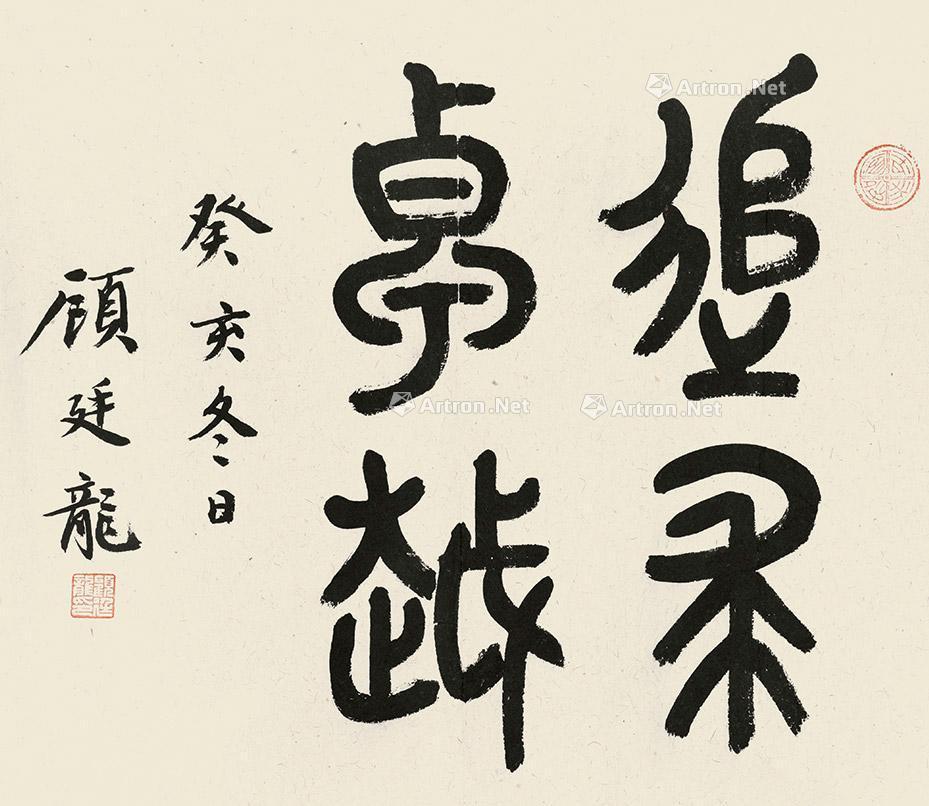 追求
卓越
癸亥冬日
顧廷龍
Artron.Net
Artron.Net
Artron.Net